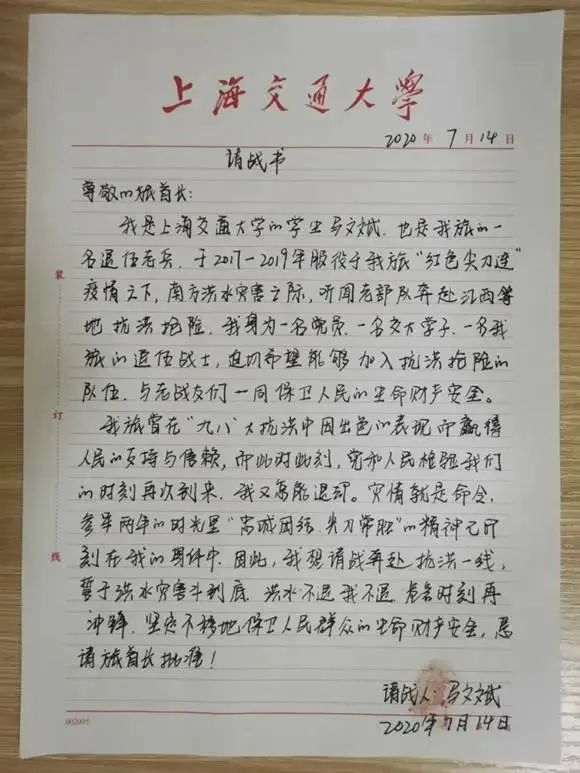 上海交通大學
2020年7月14日
请战书
尊敬的旅首长:
我是上海交通大学的学生马文斌,也是我旅的一
名退伍老兵,于2017-2019年服役于我旅“红色尖刀连”
疫情之下,南方洪水灾害之际,听闻老部队奔赴江西等
地抗洪抢险,我身为一名党员、一名交大学子、一名我
旅的退伍战士,迫切希望能够加入抗洪抢险的
队伍,与老战友们一同保卫人民的生命财产安全。
我旅曾在“九八”大抗洪中因出色的表现而赢得
人民的支持与信赖,而此时此刻,党和人民检验我们
的时刻再次到来,我又怎能退却。灾情就是命令,
参军两年的时光里“忠诚团结、尖刀常胜”的精神已印
刻在我的身体中,因此,我想请战再赴抗洪一线,
誓于洪水灾害斗到底,洪水不退我不退,危急时刻再
冲锋,坚定不移地保卫人民群众的生命财产安全,恳
请旅首长批准!
请战人:马文斌
2020年7月14日
装
订
线
002095